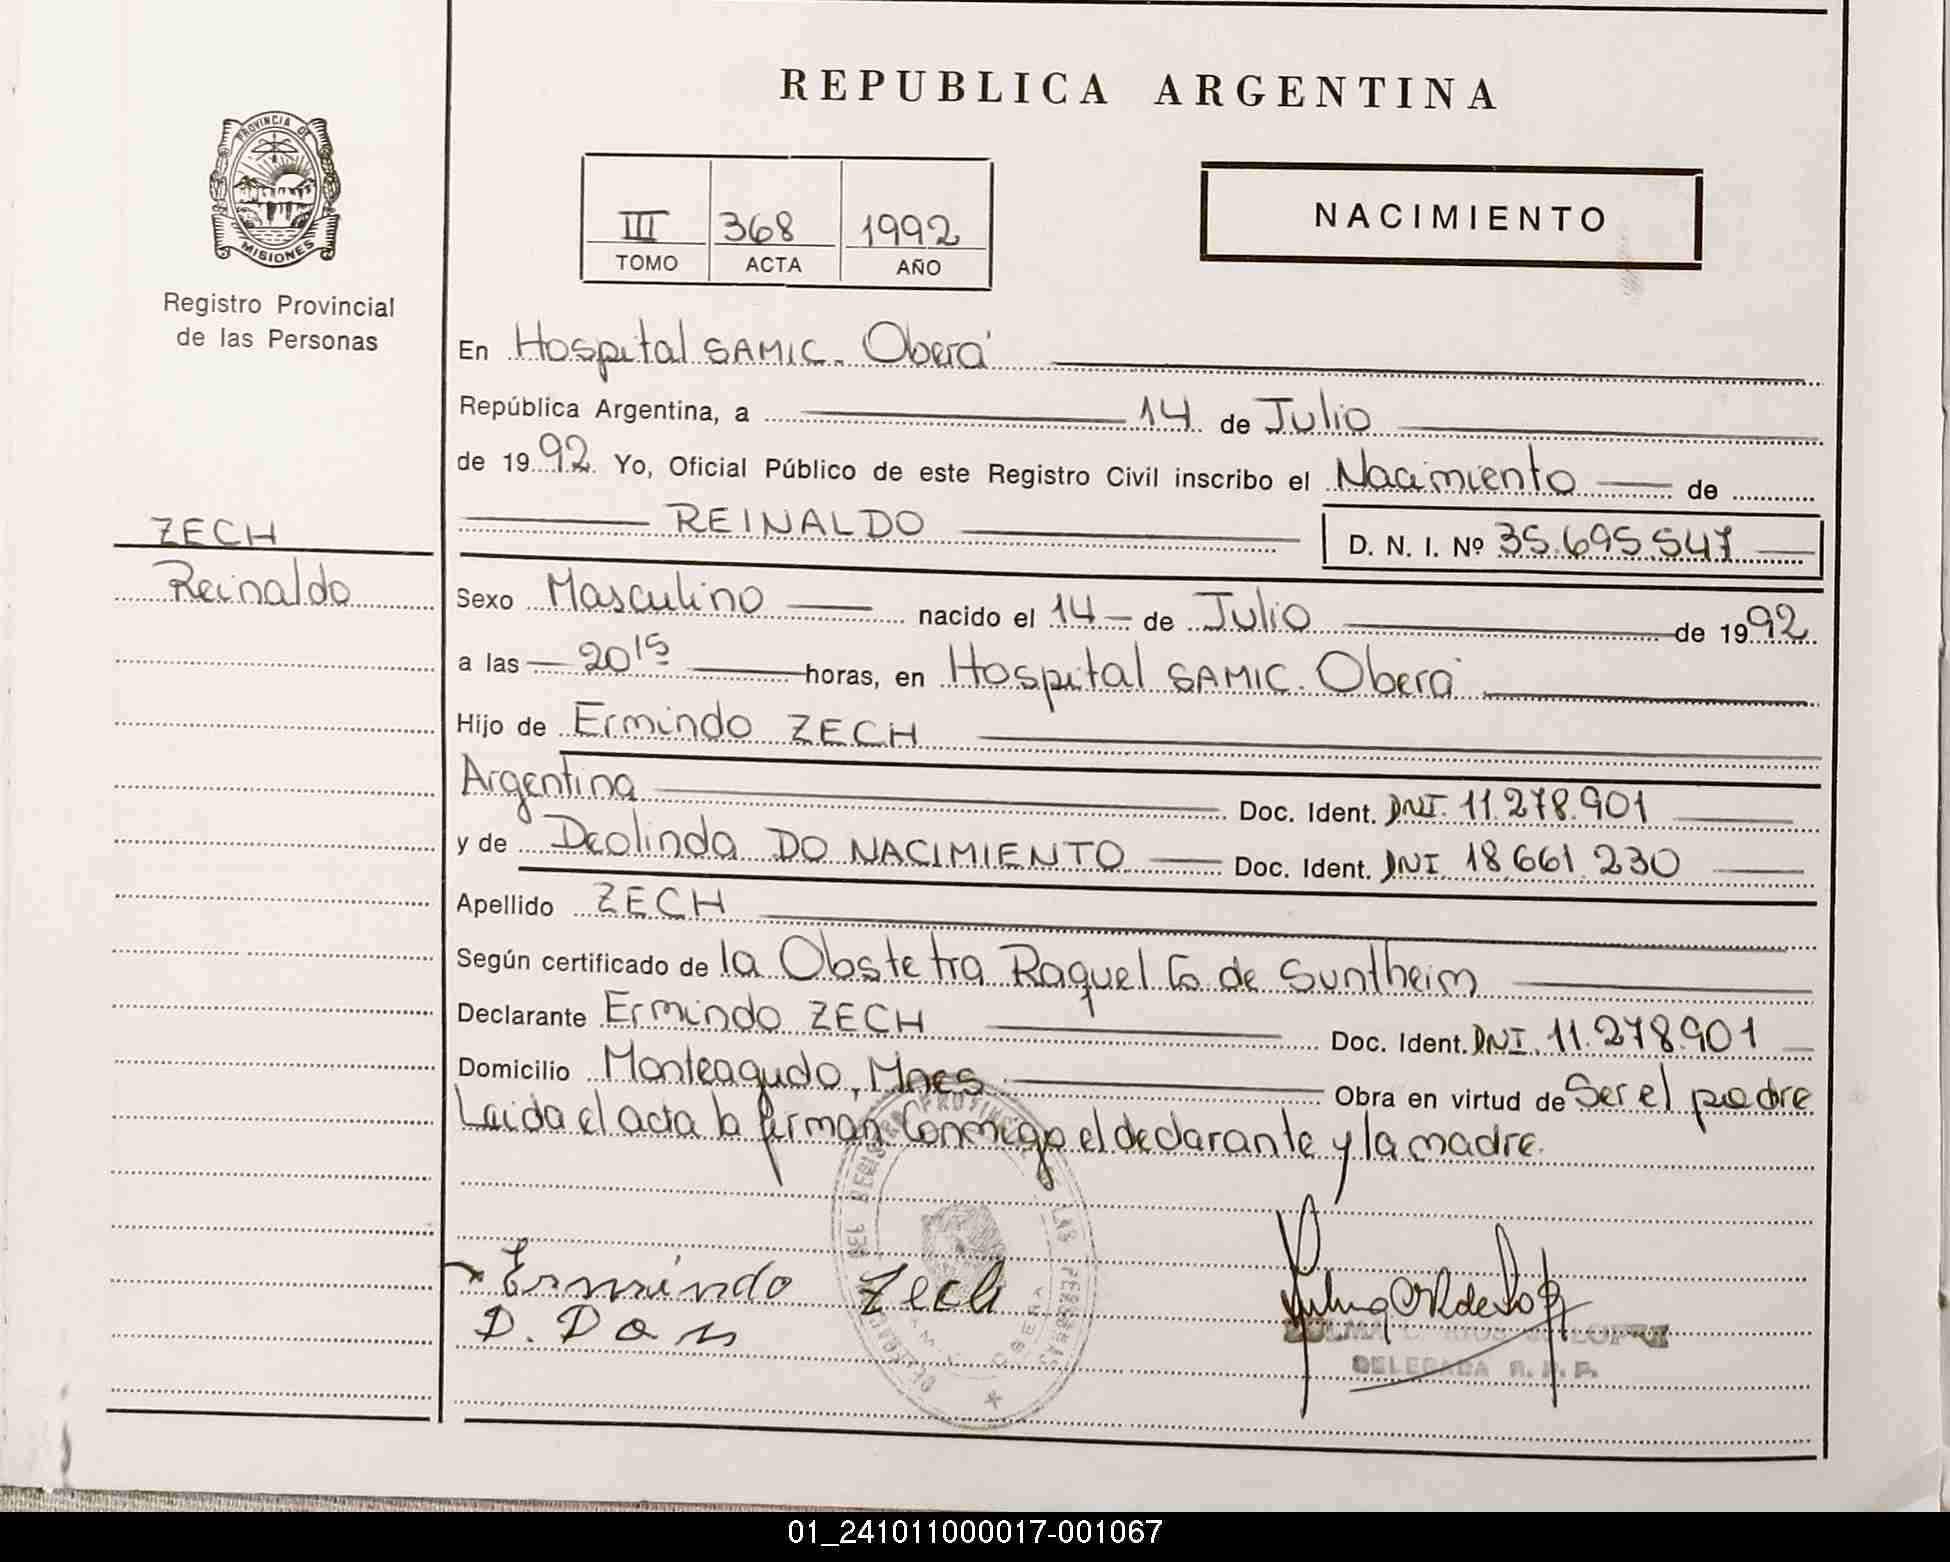 REPUBLICA ARGENTINA
PROVINCIA DE
MISIONES
Registro Provincial
de las Personas
III 368 1992
TOMO ACTA AÑO
NACIMIENTO
En Hospital SAMIC. Oberá
República Argentina, a 14 de Julio
de 1992. Yo, Oficial Público de este Registro Civil inscribo el Nacimiento de
REINALDO D. N. I. Nº 35.695.547
ZECH
Reinaldo
Sexo Masculino nacido el 14 de Julio de 1992
a las 20 15 horas, en Hospital SAMIC. Oberá
Hijo de Ermindo ZECH
Argentina Doc. Ident. DNI. 11.278.901
y de Deolinda DO NACIMIENTO Doc. Ident. DNI 18.661.230
Apellido ZECH
Según certificado de la Obstetra Raquel G de Suntheim
Declarante Ermindo ZECH Doc. Ident. DNI. 11.278.901
Domicilio Monteagudo, Mnes Obra en virtud de Ser el padre
Leida el acta la firman conmigo el declarante y la madre.
Ermindo Zech
D. Don
DELEGADA R. P. P.
01_241011000017-001067